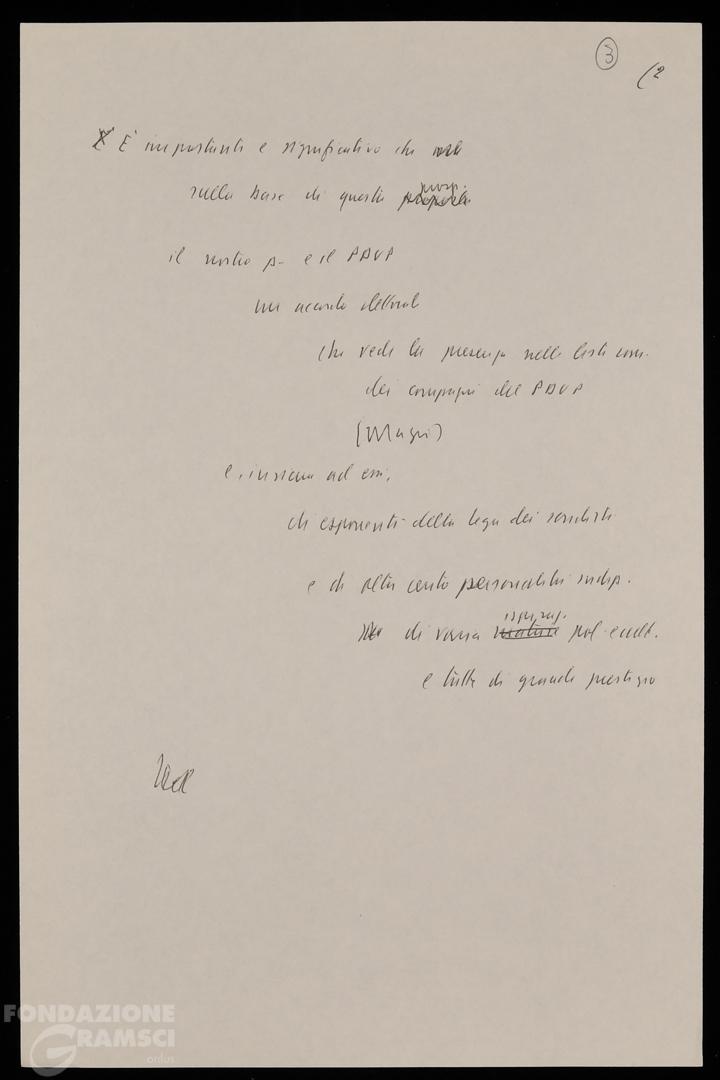 3
(2
È importante e significativo che
sulla base di questa prosp.
il nostro p- e il PDUP
un accordo elettoral
che vede la presenza nelle liste com.
dei compagni del PDUP
(Magri)
e, insieme ad essi,
di esponenti della lega dei socialisti
e di oltre cento personalità indip.
di varia ispiraz. pol. e cult.
e tutte di grande prestigio
FONDAZIONE
GRAMSCI
onlus